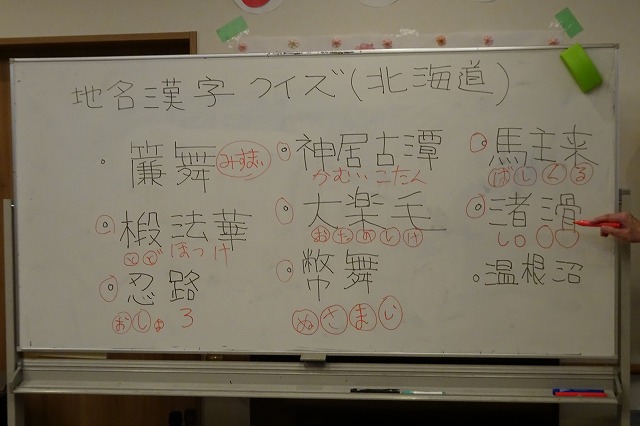 地名漢字クイズ(北海道)
簾舞
みすまい
椴法華
とど ほっけ
忍路
おしょろ
神居古潭
かむい こたん
大楽毛
おたのしけ
幣舞
ぬさまい
馬主来
ぱしくる
渚滑
しょ
温根沼